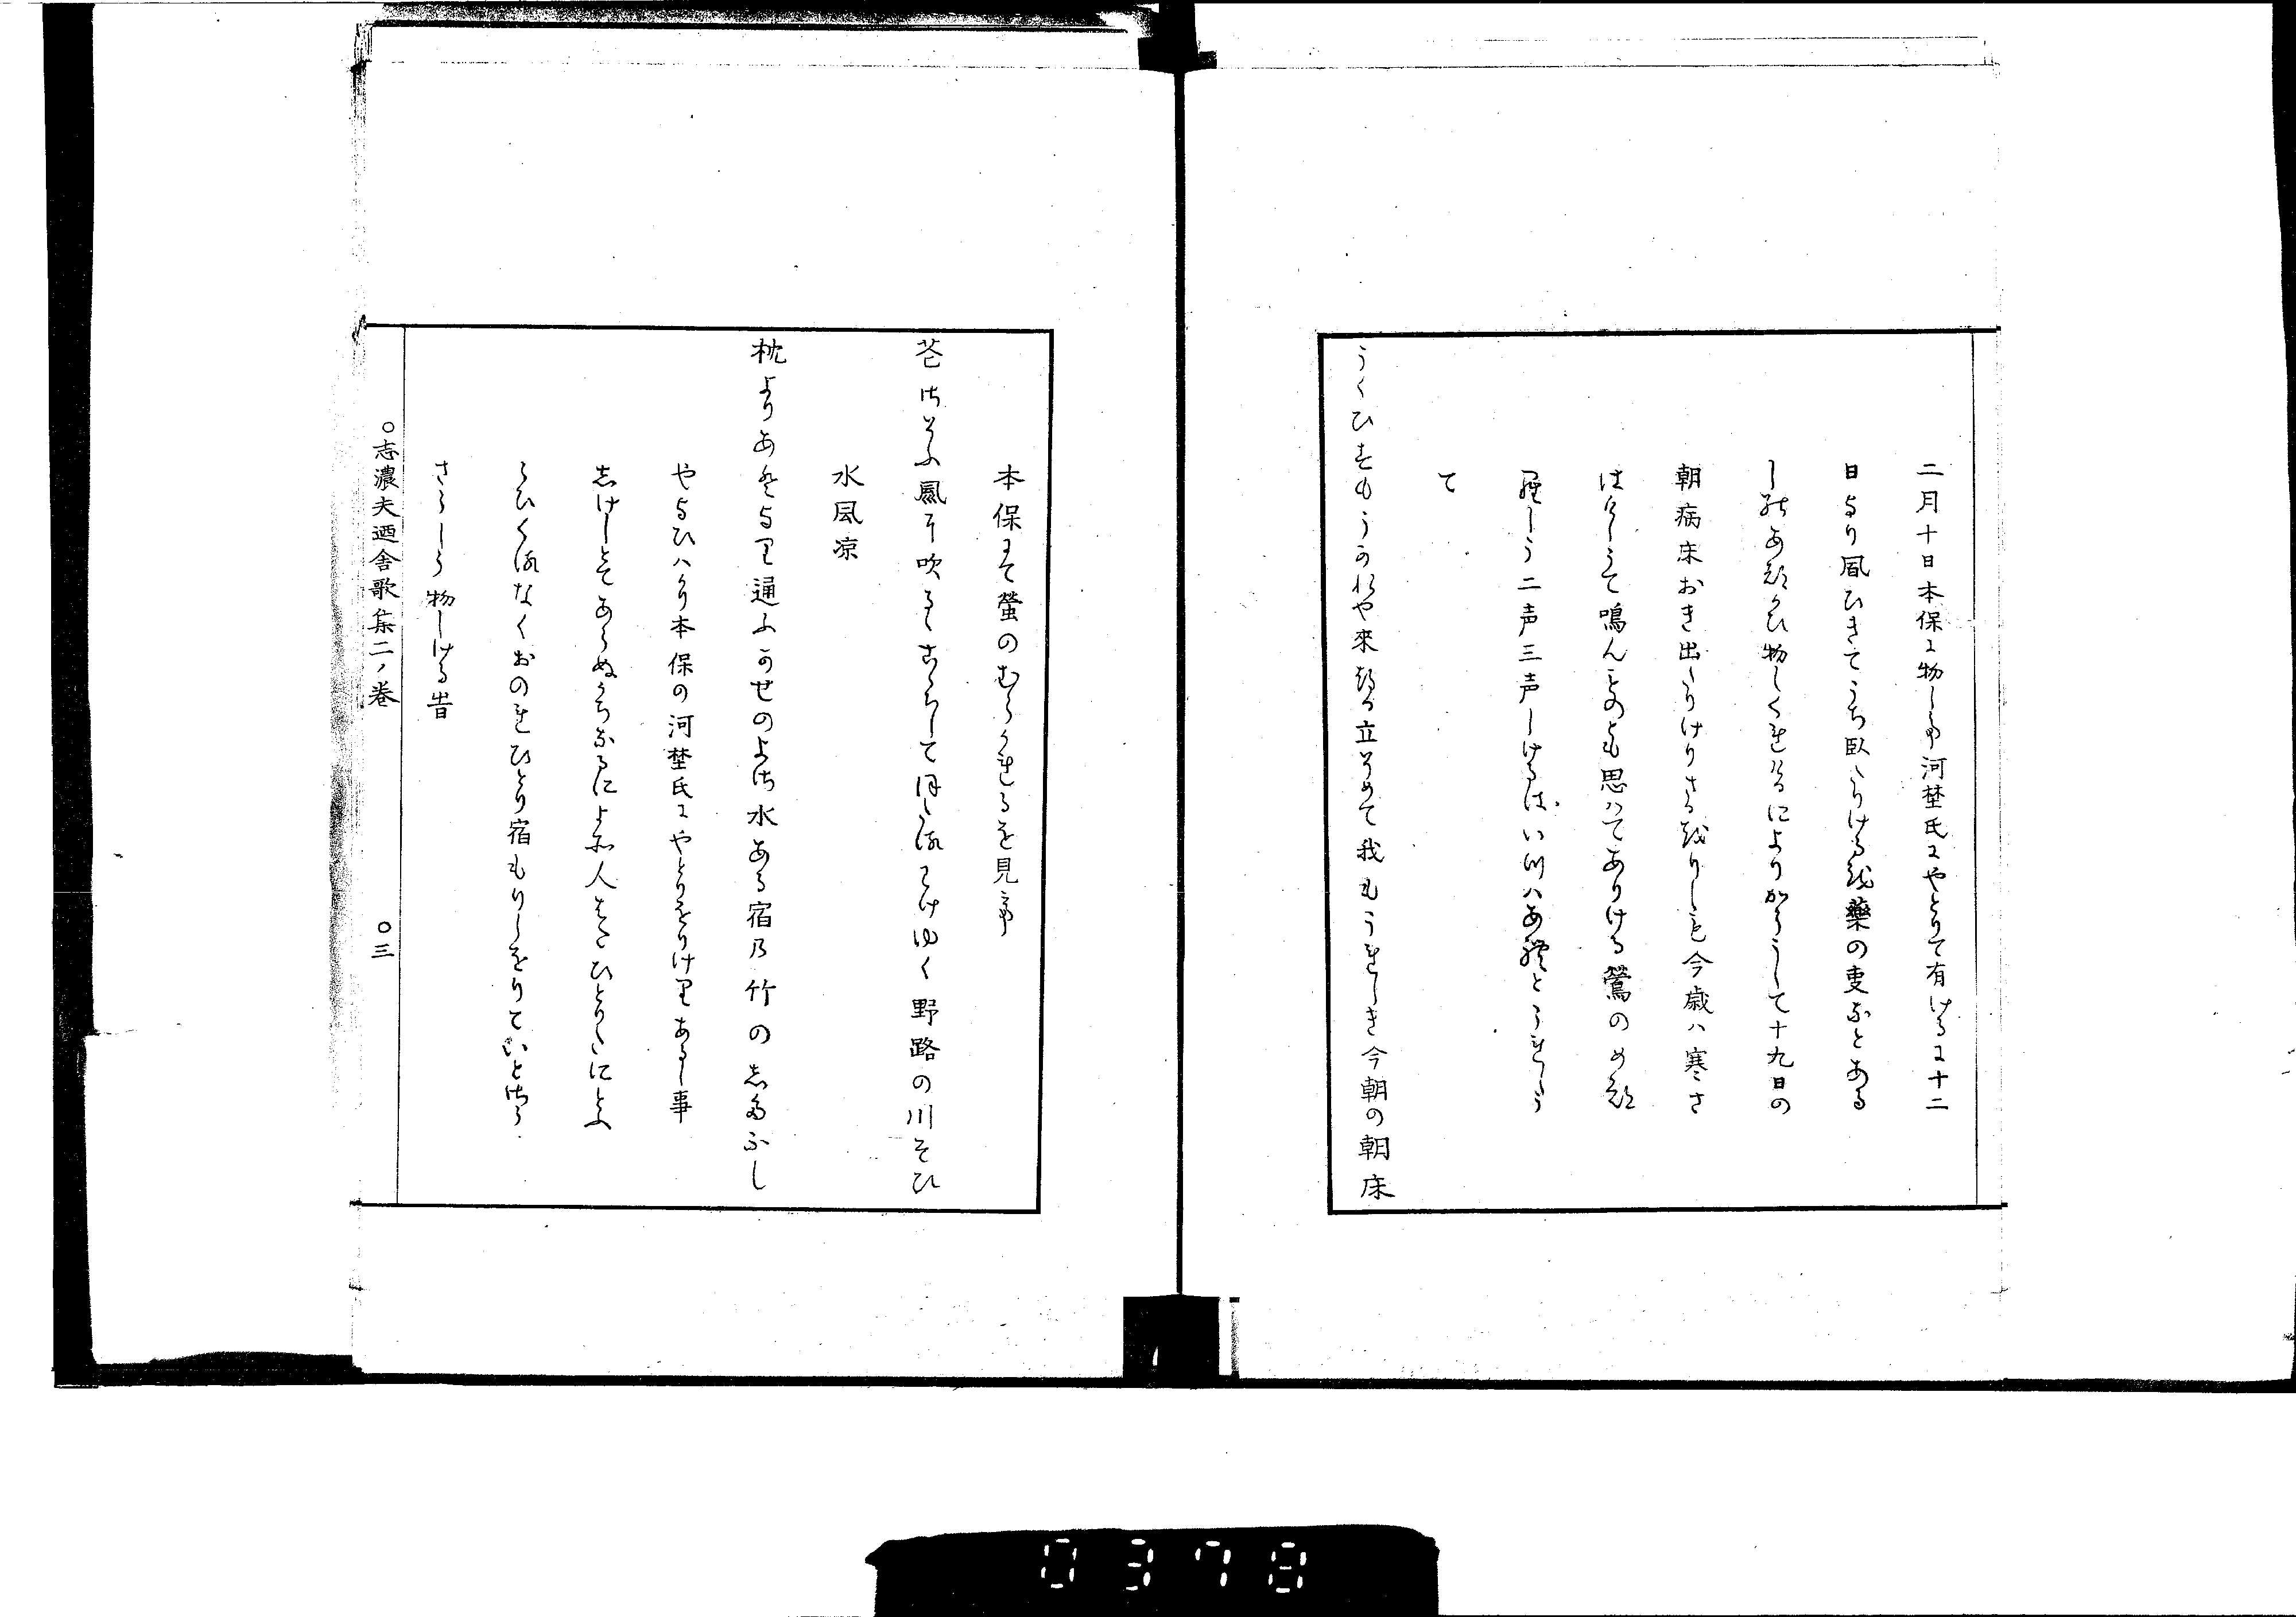 二月十日本保に物し亭河埜氏にやとりて有けるに十二
日より風ひきてうち臥たりける越藥の事なとある
しねもころひ物しくれけるによりからうして十九日の
朝病床おき出たりけりさる越りしも今歳ハ寒さ
はけしうて鳴んものとも思ハてありける鶯のめつ
羅しう二声三声しけるはいツハあれとうれしう
て
うくひすもうかれや來つる立そめて我もうれしき今朝の朝床
本保にて螢のむらかれるを見亭
芒はらふ風に吹るゝこゝちしてほたるわけゆく野路の川そひ
水風凉
枕よりあとより通ふかせのよさ水ある宿乃竹のしたふし
やよひハかり本保の河埜氏にやとりをりけりあるし事
しけしとてあらぬうちなるによふ人もたゝひとりたにとふ
らひくるなくおのれひとり宿もりしをりていとさう
さうしう物しける昔
○志濃夫廼舎歌集二ノ巻
○三
0378